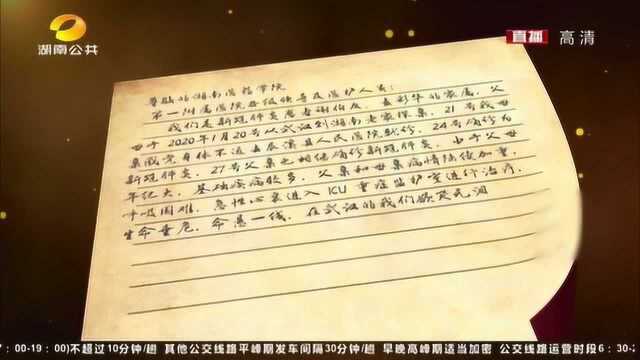 湖南公共
直播 高清
尊敬的湖南医药学院
第一附属医院各级领导及医护人员：
我们是新冠肺炎患者谢伯友、
的家属，父
母于2020年1月20号从武汉到湖南老家探亲，21号我母
亲感觉身体不适去辰溪县人民医院就诊，24号确诊为
新冠肺炎，27号父亲也相继确诊新冠肺炎，由于父母
年纪大，基础疾病较多，父亲和母亲病情陆续加重，
呼吸困难，急性心衰进入ICU重症监护室进行治疗，
生命垂危，命悬一线，在武汉的我们
7：00-19：00)不超过10分钟/趟 其他公交线路平峰期发车间隔30分钟/趟 早晚高峰期适当加密 公交线路运营时段6：30-